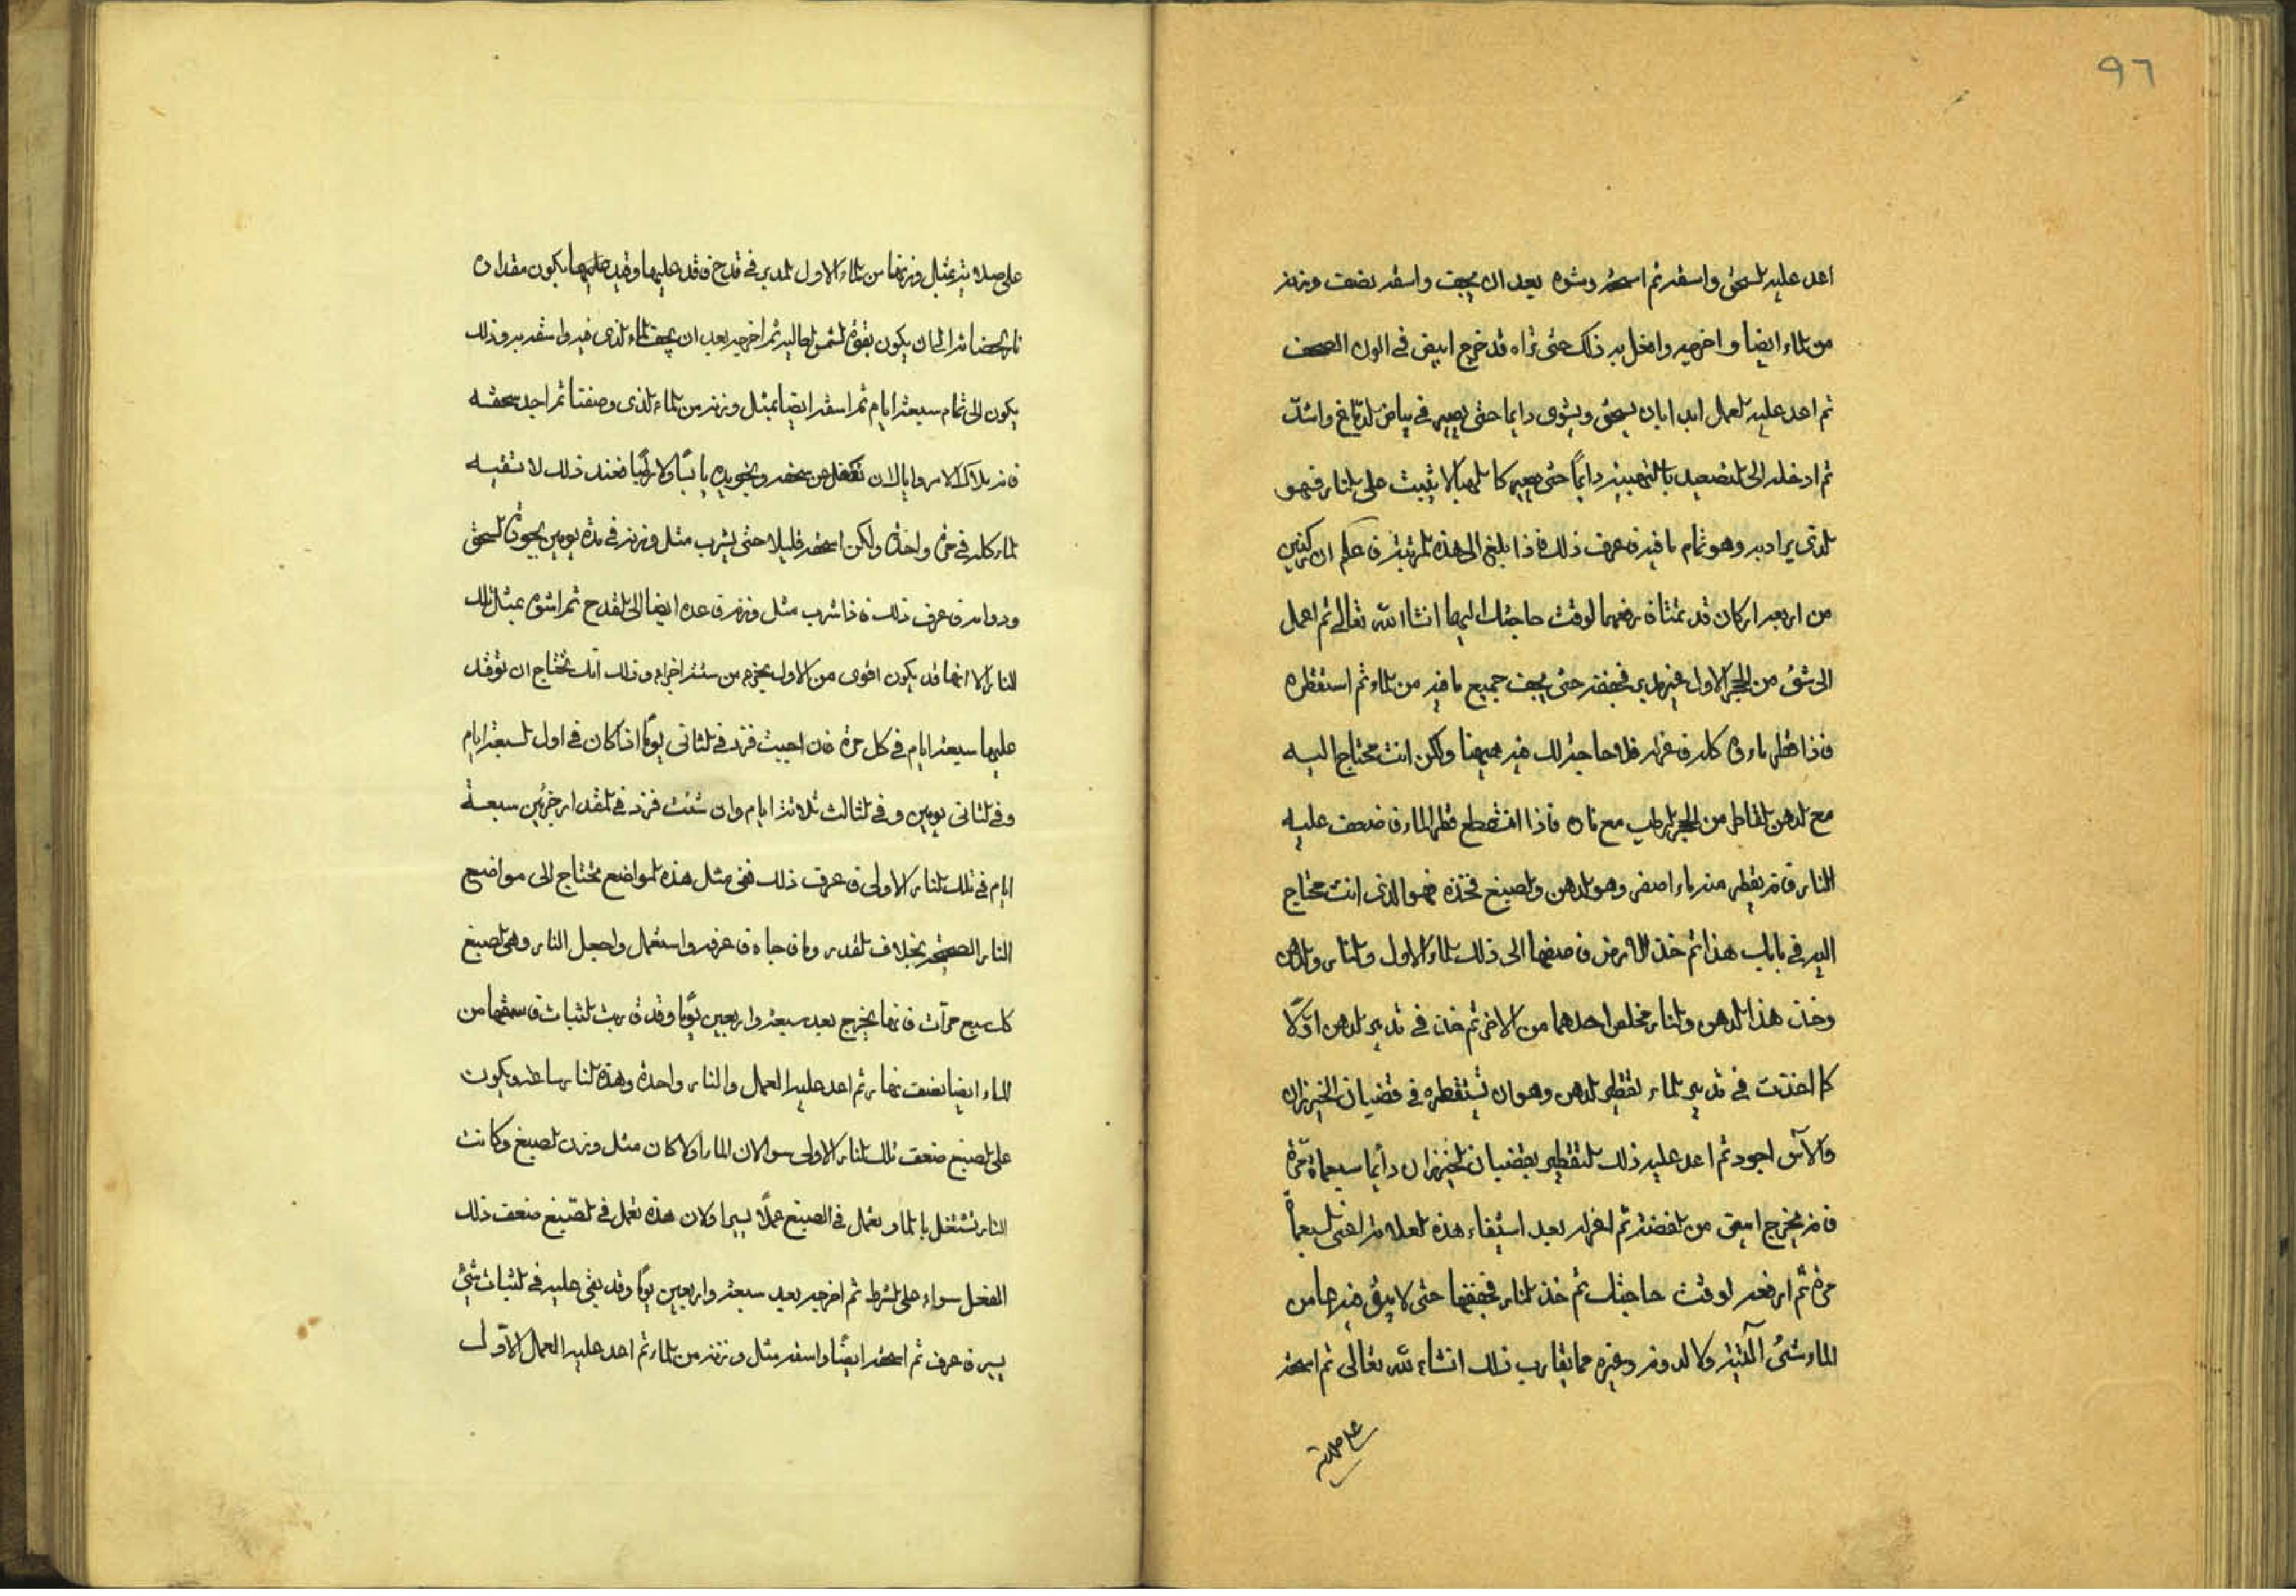 ٩٦
اعد عليه السحق واسقه ثم اسحقه وشوه بعد ان يجف واسقه نصف وزنه
من الماء ايضا واخرجه وافعل به ذلك حتى تراه قد خرج ابيض في الون
ثم اعد عليه العمل ابدا بان يسحق ويشوى دايما حتى يصير في بياض الدماغ واشد
ثم ادخله الى التصعيد دايمًا حتى يصير كالهبا لا يثبت على النار فهو
الذي يراد به وهو تمام ما فيه فاعرف ذلك فاذا بلغ الى هذه المرتبة فاعلم ان ركنين
من اربعة اركان قد تمتا فارفعهما لوقت حاجتك اليهما انشا الله تعالى ثم اعمل
الى شئ من الحجر الاول غير مدبر فجففه حتى يجف جميع ما فيه من الماء ثم استقطره
فاذا قطر ماءوه كله فاعزله فلا حاجة لك فيه هيهنا ولكن انت محتاج اليه
مع الدهن القاطر من الحجر الرطب مع ناره فاذا انقطع قطر الماء فضعف عليه
النار فانه يقطر منه ماء اصفر وهو الدهن والصبغ فخذه فهو الذي انت محتاج
اليه في باب هذا ثم خذ الارض فاضفها الى ذلك الماء الاول والنار والدهن
وخذ هذا الدهن والنار فخلص احدهما من الاخر ثم خذ في تدبير الدهن اوّلا
كما اخذت في تدبير الماء تقطير الدهن وهو ان تستقطره في قضبان الخيزران
والآس اجود ثم اعد عليه ذلك التقطير بقضبان الخيزران دايما سبعماة مرّة
فانه يخرج ابيض من الفضة ثم اعزله بعد استيفاء هذه العلامة اعني السبعماة
مرة ثم ارفعه لوقت حاجتك ثم خذ النار فجففها حتى لا يبقى فيها من
الماء شئ البتة ولا لدونه وغيره مما يقارب ذلك انشاء الله تعالى ثم اسحقه
على صلاية
على صلاية بمثل وزنها من الماء الاول المدبر في قدح فاوقد عليها وقيد عليها يكون مقداره
نار الحضانة الى ان يكون بقوة الشمس الحالية ثم اخرجه بعد ان يجف الماء الذي فيه واسقه به وذلك
يكون الى تمام سبعة ايام ثم اسقه ايضا بمثل وزنه من الماء الذي وصفنا ثم اجد سحقه
فانه ملاك الامر واياك ان تغفل عن سحقه وتجويده يابسًا ولا رطبًا فعند ذلك لا تسقيه
الماء كله في مرة واحدة ولكن اسحقه قليلا حتى يشرب مثل وزنه في مدة يومين بجودة السحق
ودوامه فاعرف ذلك فاذا شرب مثل وزنه فاعده ايضا الى القدح ثم اشوه بمثل تلك
النار الا انها قد يكون اقوى من الاول بجزء من ستة اجزاء وذلك انك تحتاج ان توقد
عليها سبعة ايام في كل مرة فان احببت فزد في الثاني يومًا اذا كان في اول السبعة ايام
وفي الثاني يومين وفي الثالث ثلاثة ايام وان شئت فزد في المقدار جزئين سبعة
ايام في تلك النار الاولى فاعرف ذلك ففي مثل هذه المواضع تحتاج الى مواضع
النار الصحيحة بخلاف القدر وما فاعرفه واستعمل واجعل النار وهي الصبغ
كل سبع مرآت فانها يخرج بعد سبعة واربعين يومًا وقد قاربت الثبات فاسقها من
الماء ايضا نصف نهار ثم اعد عليه العمل والنار واحدة وهذه النار ويكون
على الصبغ ضعف تلك النار الاولى سوا لان الماء اولا كان مثل وزن الصبغ وكانت
النار تشتغل بالماء و تعمل في الصبغ عملًا يسيرا ولان هذه تعمل في الصبغ ضعف ذلك
الفعل سواء على الشرط ثم اخرجه بعد سبعة واربعين يومًا وقد بقي عليه في الثبات شئ
يسير فاعرف ثم اسحقه ايضًا واسقه مثل وزنه من الماء ثم اعد عليه العمل الاوّل